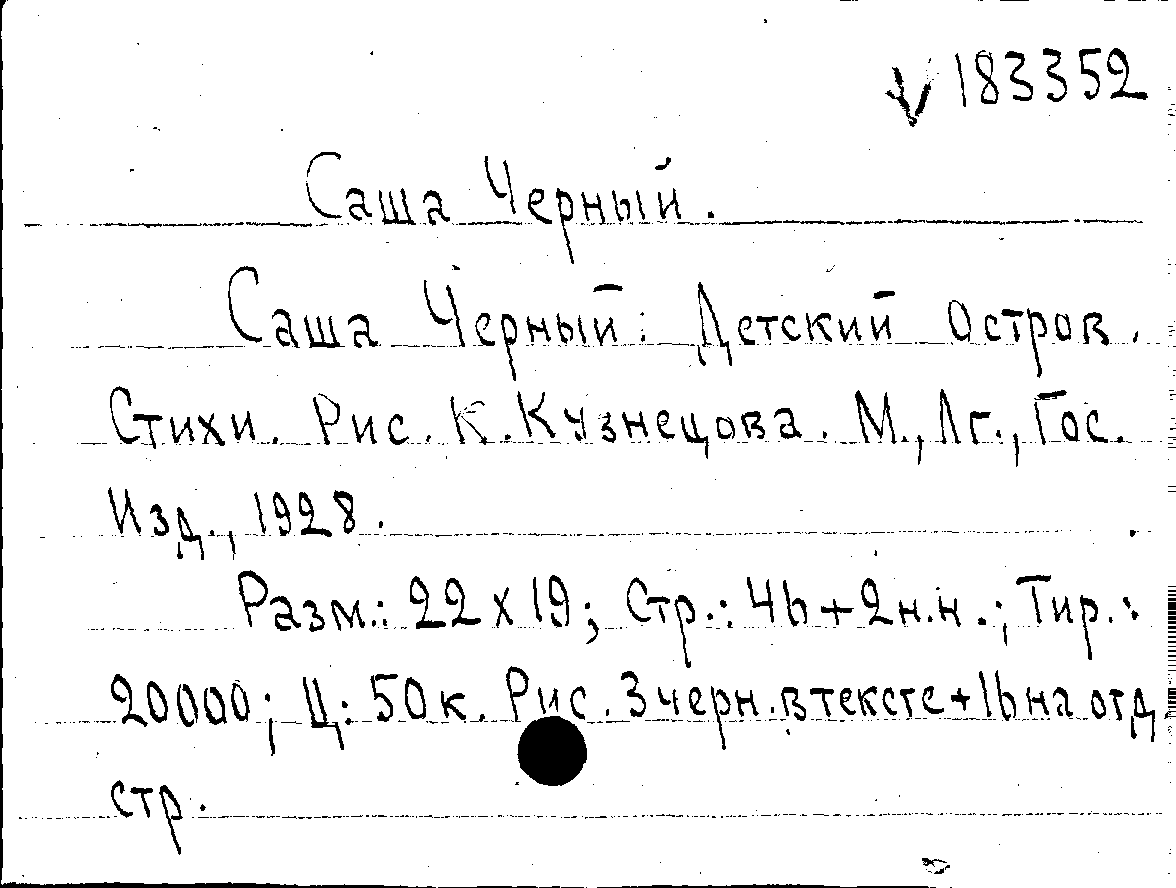 V 183352
Саша Черный.
Саша Черный: Детский остров.
Стихи. Рис. К. Кузнецова. М., Лг., Гос.
Изд., 1928.
Разм.: 22 х 19; Стр.: 46 + 2 н.н.; Тир.:
20000; Ц: 50 к. Рис. 3 черн. в тексте + 16 на отд.
стр.